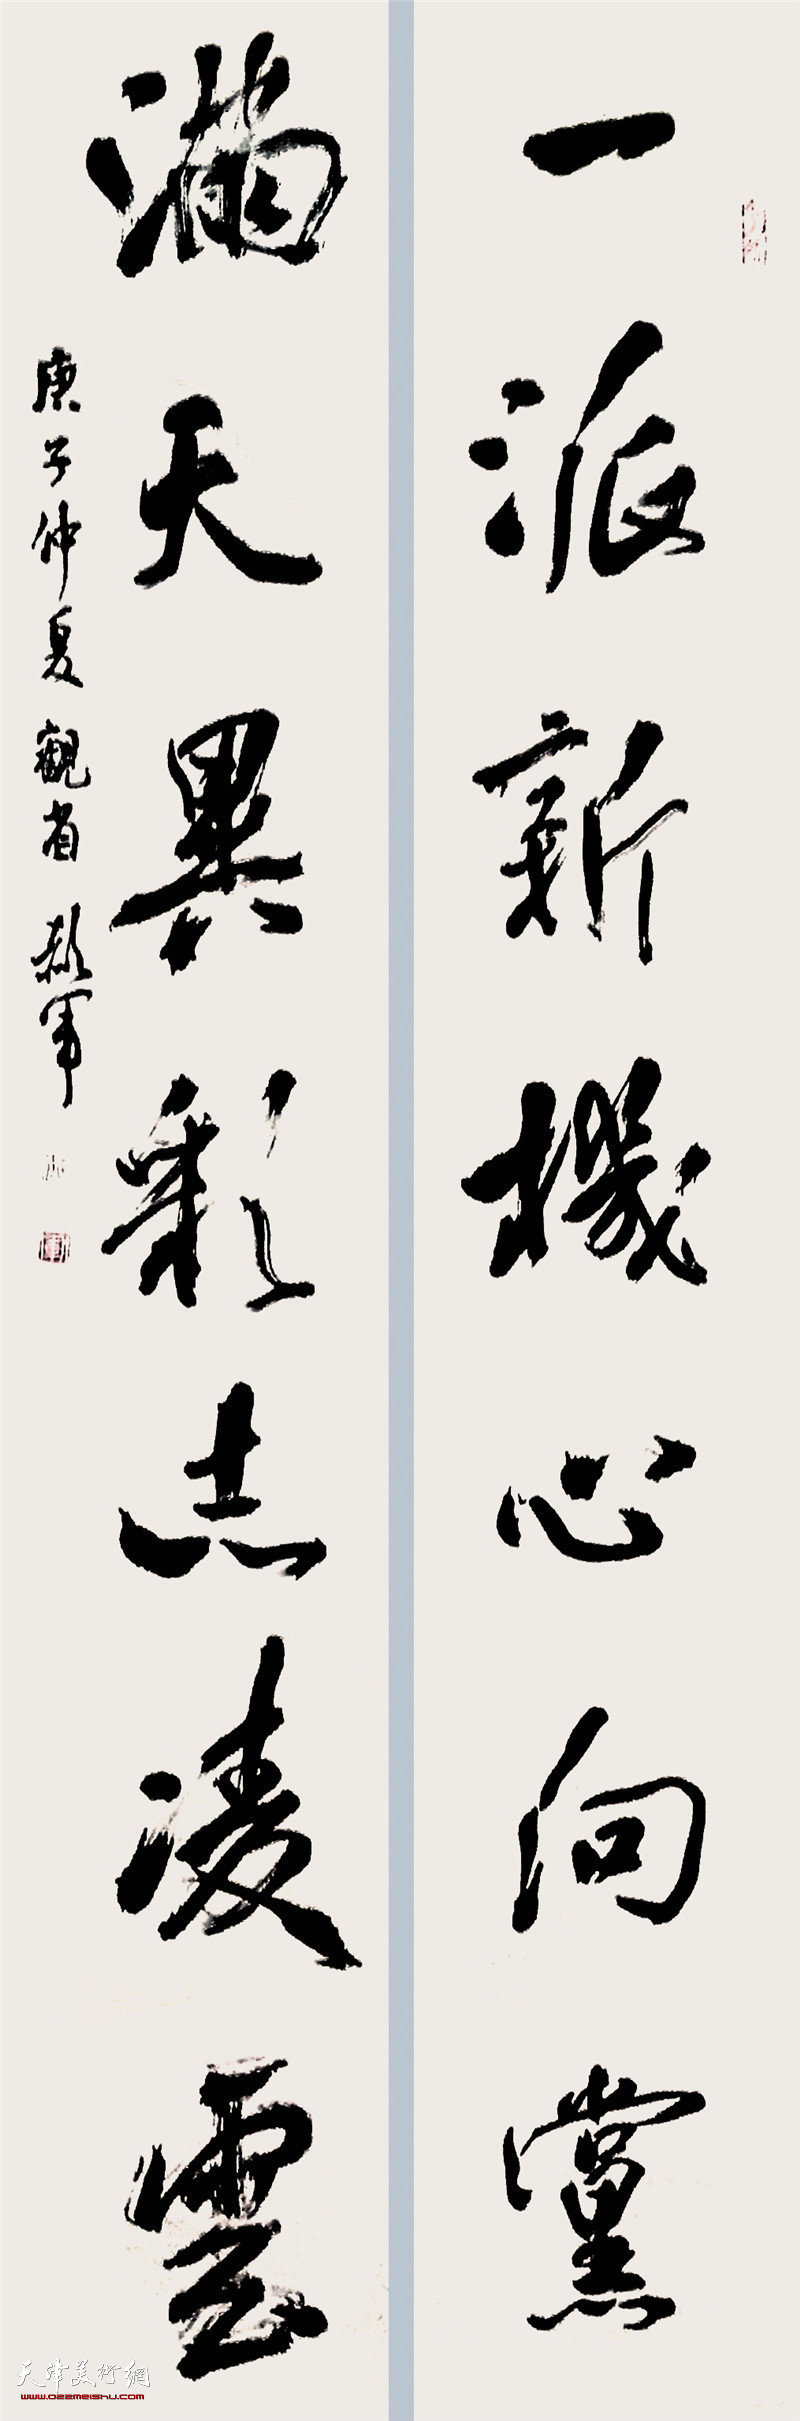 一派新機心向黨
滿天異彩志凌雲
庚子仲夏觀省 赦軍
天津美術網
www.022meishu.com